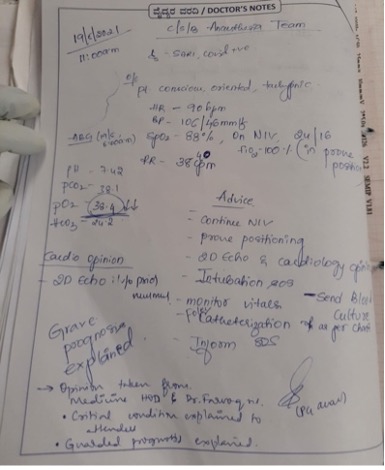 ವೈದ್ಯರ ವರದಿ / DOCTOR'S NOTES
19/5/2021
11:00am
c/s/b Anaesthesia Team
SARI, covid +ve
O/E
pt. conscious, oriented, tachypnic
HR - 90bpm
BP - 106/46mmHg
ABG
SpO2 - 88%, on NIV, 24/16
FiO2-100% (in prone position
RR - 38 cpm
PH - 7.42
PCO2 - 38.1
PO2 38.4 ↓↓
HCO3 - 24.2
Advice
- continue NIV
- prone positioning
- 2D Echo & cardiology opinion
- Intubation SOS
- monitor vitals
- Send Blood culture
- Foley catheterization as per chart
- Inform SOS
Cardio opinion
- 2D Echo
Grave prognosis explained
→ Opinion taken from Medicine HOD & Dr. Farooq
• Critical condition explained to attender
• Guarded prognosis explained.